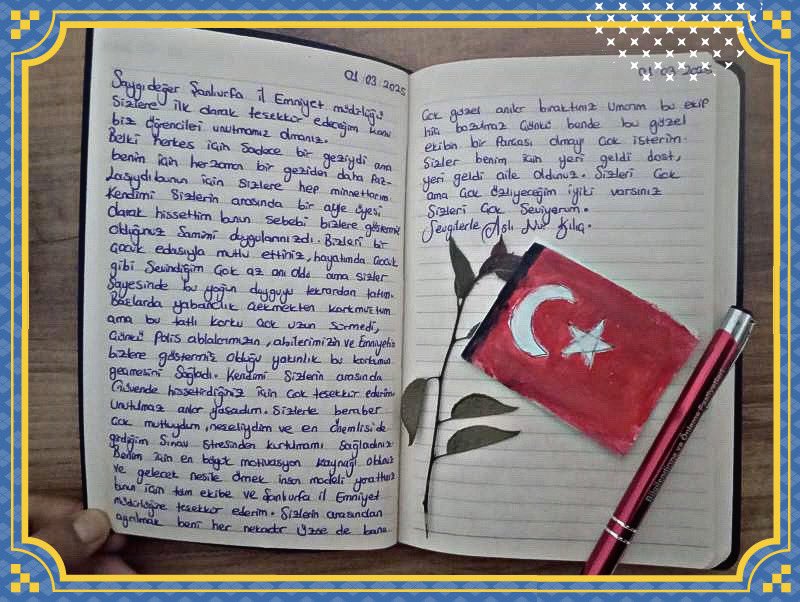 01.03.2025
Saygıdeğer Şanlıurfa İl Emniyet müdürlüğü
Sizlere ilk olarak teşekkür edeceğim konu
biz öğrencileri unutmamız olmanız.
Belki herkes için Sadece bir geziydi ama
benim için herzaman bir geziden daha faz-
lasıydı bunun için Sizlere hep minnettarım.
Kendimi Sizlerin arasında bir aile üyesi
olarak hissettim bunun sebebi bizlere göstermiş
olduğunuz Samimi duygularınızdı. Bizleri bir
çocuk edasıyla mutlu ettiniz, hayatımda çocuk
gibi Sevindiğim çok az anı oldu ama sizler
Sayesinde bu yoğun duyguyu tekrardan tattım.
Bazlarda yabancılık çekmekten korkmuştum
ama bu tatlı korku çok uzun sürmedi,
Çünkü Polis ablalarımızın, abilerimizin ve Emniyetin
bizlere göstermiş olduğu yakınlık bu korkumun
geçmesini Sağladı. Kendimi Sizlerin arasında
Güvende hissettirdiğiniz için çok teşekkür ederim
Unutulmaz anlar yaşadım. Sizlerle beraber
çok mutluydum, neşeliydim ve en önemlisi de
girdiğim Sınav stresinden kurtulmamı Sağladınız
Benim için en büyük motivasyon kaynağı oldunuz
ve gelecek nesile örnek insan modeli yarattınız
bunun için tüm ekibe ve Şanlıurfa il Emniyet
müdürlüğüne teşekkür ederim. Sizlerin arasından
ayrılmak beni her nekadar üzse de bana
01.03.2025
Çok güzel anılar bıraktınız Umarım bu ekip
hiç bozulmaz Çünkü bende bu güzel
ekibin bir Parçası olmayı çok isterim.
Sizler benim için yeri geldi dost,
yeri geldi aile oldunuz. Sizleri çok
ama çok özliyeceğim iyiki varsınız
Sizleri Çok Seviyorum.
Sevgilerle, Aslı Nur Kılıç.
Bilgilendirme ve Önleme Faaliyetleri